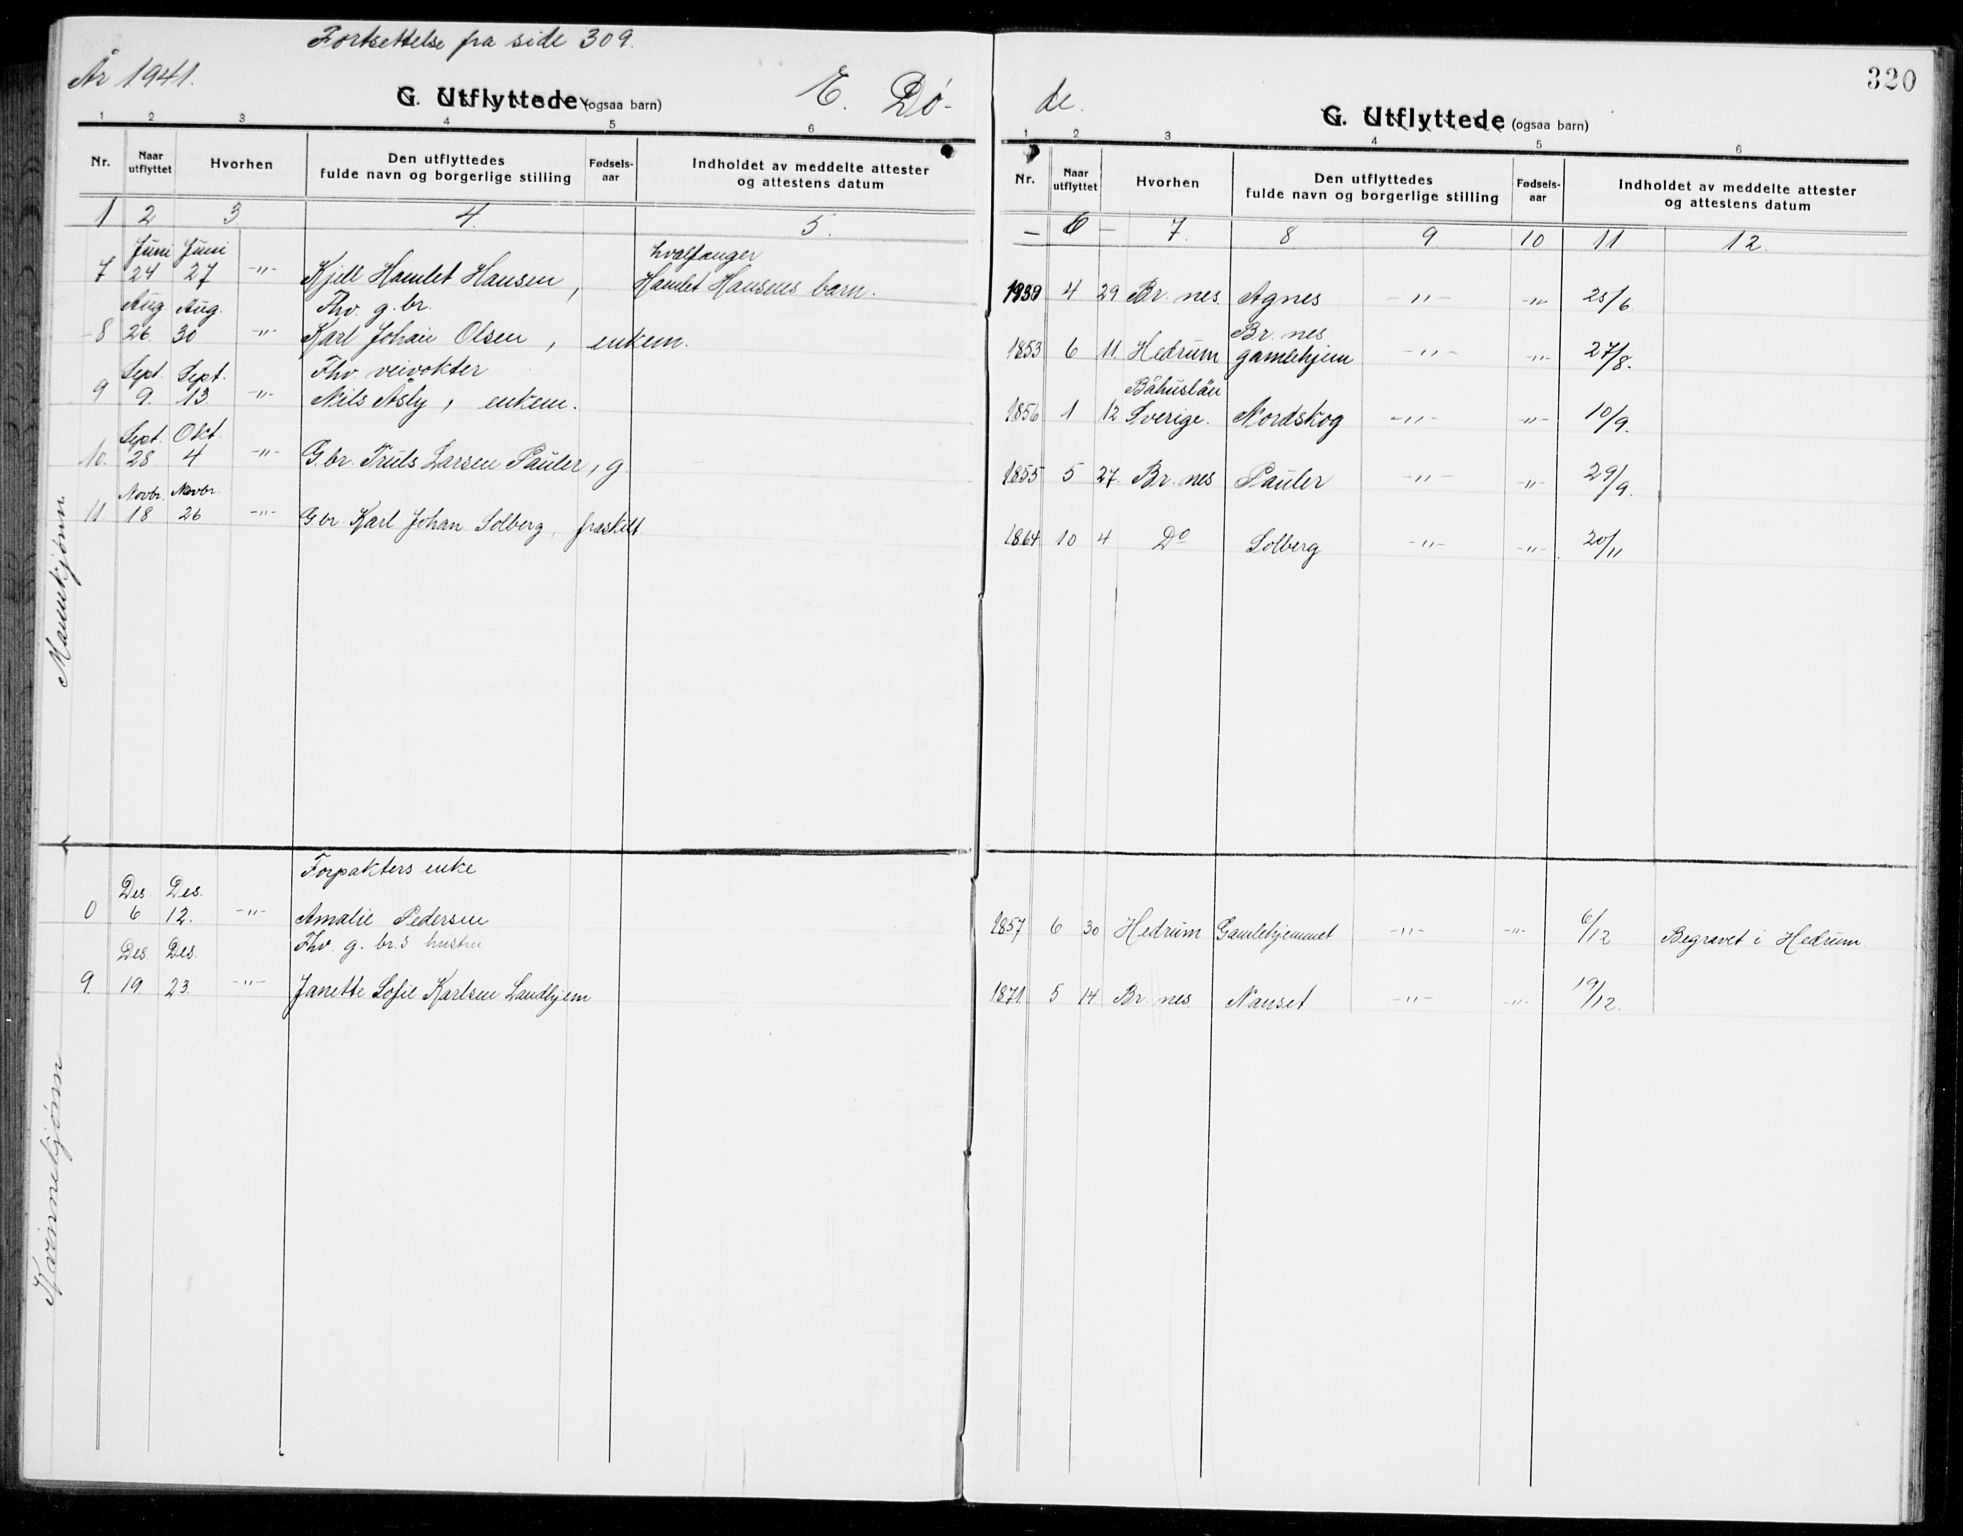 Fortsettelse fra side 309.
År 1941.
G. Utflyttede (ogsaa barn)
E. Dø-
1 2 3 4 5 6
Nr. Naar utflyttet Hvorhen Den utflyttedes fulde navn og borgerlige stilling Fødsels-aar Indholdet av meddelte attester og attestens datum
1 2 3 4. 5.
Juni Juni hvalfanger
7 24 27 -"- Kjell Hamlet Hansen, Hamlet Hansens barn.
Aug Aug. Fhv. g. br.
8 26 30 -"- Karl Johan Olsen, enkem.
Sept. Sept. Fhv. veivokter
9 9. 13 -"- Nils Åsly, enkem.
Sept. Okt.
10. 28 4 -"- G.br. Truls Larsen Pauler, g.
Novbr. Novbr.
11 18 26 -"- G br Karl Johan Solberg, fraskilt
Mannkjønn.
Forpakters enke
Des. Des.
0 6 12. -"- Amalie Pedersen
Des. Des. Fhv. g. br.s hustru
9. 19 23 -"- Janette Sofie Karlsen Landhjem
Kvinnekjønn
320
de.
G. Utflyttede (ogsaa barn)
1 2 3 4 5 6
Nr. Naar utflyttet Hvorhen Den utflyttedes fulde navn og borgerlige stilling Fødsels-aar Indholdet av meddelte attester og attestens datum
— 6 — 7. 8 9 10 11 12.
1939 4 29 Br. nes Agnes -"- -"- 25/6.
Br. nes
1853 6 11 Hedrum gamlehjem -"- -"- 27/8.
Båhuslän
1856 1 12 Sverige. Nordskog -"- -"- 10/9.
1855 5 27 Br. nes Pauler -"- -"- 29/9.
1864 10 4 Do Solberg -"- -"- 20/11
1857 6 30 Hedrum Gamlehjemmet -"- -"- 6/12 Begravet i Hedrum.
1871. 5 14 Br. nes. Nanset -"- -"- 19/12.